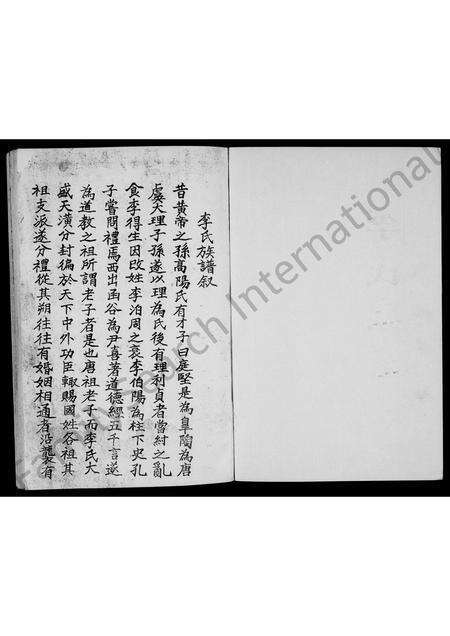 李氏族譜叙
昔黃帝之孫高陽氏有才子曰庭堅是為皐陶為唐
虞大理子孫遂以理為氏後有理利貞者當紂之亂
食李得生因改姓李洎周之衰李伯陽為柱下史孔
子嘗問禮焉西出函谷為尹喜著道德經五千言遂
為道教之祖所謂老子者是也唐祖老子而李氏大
盛天潢分封徧於天下中外功臣輒賜國姓各祖其
祖支派遂分禮從其朔往往有婚姻相通者沿襲有
Search International